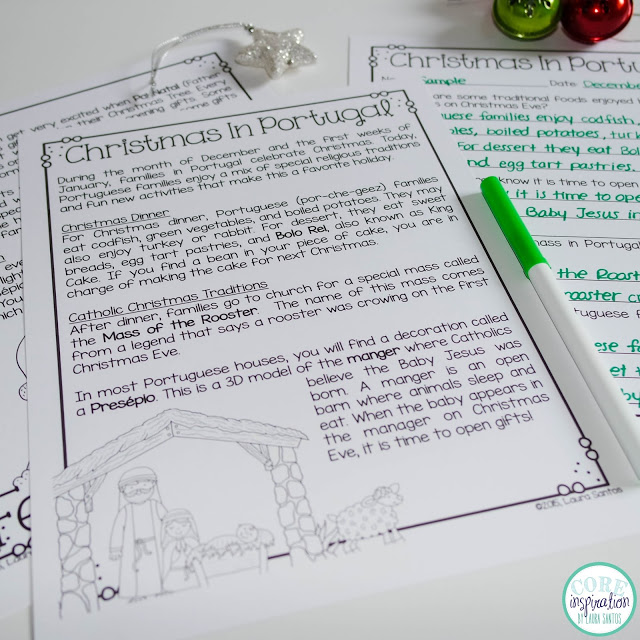 get very excited when Pai Natal (Father
their Christmas tree. Every
opening gifts. Some
some gifts
Christmas In Portugal
During the month of December and the first weeks of
January, families in Portugal celebrate Christmas. Today,
Portuguese families enjoy a mix of special religious traditions
and fun new activities that make this a favorite holiday.
Christmas Dinner
For Christmas dinner, Portuguese (por-che-geez) families
eat codfish, green vegetables, and boiled potatoes. They may
also enjoy turkey or rabbit. For dessert, they eat sweet
breads, egg tart pastries, and Bolo Rei, also known as King
Cake. If you find a bean in your piece of cake, you are in
charge of making the cake for next Christmas.
Catholic Christmas Traditions
After dinner, families go to church for a special mass called
the Mass of the Rooster. The name of this mass comes
from a legend that says a rooster was crowing on the first
Christmas Eve.
In most Portuguese houses, you will find a decoration called
a Presépio. This is a 3D model of the manger where Catholics
believe the Baby Jesus was
born. A manger is an open
barn where animals sleep and
eat. When the baby appears in
the manager on Christmas
Eve, it is time to open gifts!
©2015, Laura Santos
Christmas In Port
Sample Date: Decembe
are some traditional foods enjoyed
s on Christmas Eve?
uese families enjoy codfish,
les, boiled potatoes, turk
For dessert they eat Bol
nd egg tart pastries.
know it is time to ope
it is time to ope
Baby Jesus in
mass in Portugal
the Rooste
rooster c
uguese f
se fa
et t
by
CORE
inspiration
BY LAURA SANTOS